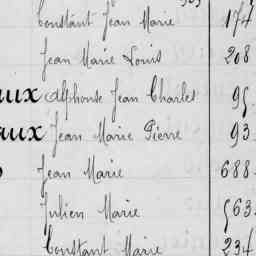 Constant Jean Marie 174
Jean Marie Louis 208
aux Alphonse Jean Charles 95.
aux Jean Marie Pierre 93
Jean Marie 688.
Julien Marie 563.
Constant Marie 234